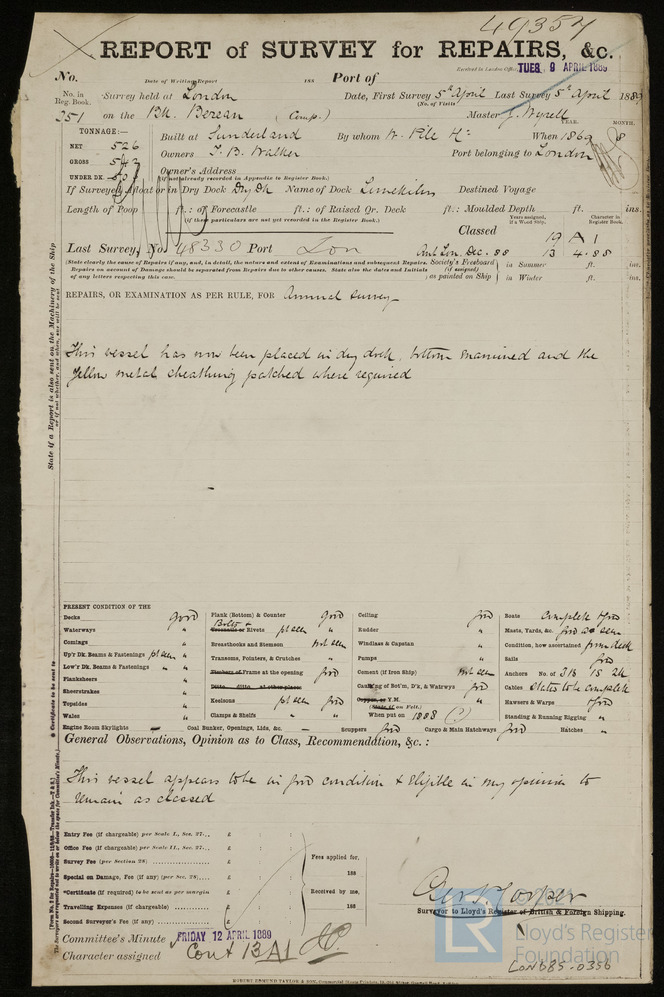 49357
REPORT of SURVEY for REPAIRS, &c.
Received in London Office, TUES. 9 APRIL 1889
No. Date of Writing Report 188 Port of
No. in Reg. Book. Survey held at London Date, First Survey 5th April Last Survey 5th April 1889
(No. of Visits)
251 on the Bk. Berean (Comp.) Master J. Wyrell
TONNAGE:— YEAR. MONTH.
NET 526 Built at Sunderland By whom W. Pile When 1869 8
GROSS 542 Owners T. B. Walker Port belonging to London
UNDER DK. Owner's Address
(if not already recorded in Appendix to Register Book.)
If Surveyed Afloat or in Dry Dock Dry Dk Name of Dock Limekiln Destined Voyage
Length of Poop ft.: of Forecastle ft.: of Raised Qr. Deck ft.: Moulded Depth ft. ins.
(if these particulars are not yet recorded in the Register Book.) Years assigned, if a Wood Ship. Character in Register Book.
Classed 19 A 1
Last Survey, No. 48330 Port Lon Lon. Dec. 88 13 4.88
(State clearly the cause of Repairs if any, and, in detail, the nature and extent of Examinations and subsequent Repairs. Society's Freeboard in Summer ft. ins.
Repairs on account of Damage should be separated from Repairs due to other causes. State also the dates and Initials (if assigned)
of any letters respecting this case. as painted on Ship in Winter ft. ins.
REPAIRS, OR EXAMINATION AS PER RULE, FOR Annual Survey
This vessel has now been placed in dry dock, bottom examined and the
Yellow metal sheathing patched where required
State if a Report is also sent on the Machinery of the Ship
PRESENT CONDITION OF THE
Decks good Plank (Bottom) & Counter good Ceiling good Boats Complete & good
Waterways " Bolts & Treenails or Rivets pt seen Rudder " Masts, Yards, &c. good as seen
Comings " Breasthooks and Stemson not seen Windlass & Capstan " Condition, how ascertained from deck
Up'r Dk. Beams & Fastenings pt seen Transoms, Pointers, & Crutches " Pumps " Sails good
Low'r Dk. Beams & Fastenings " Timbers of Frame at the opening good Cement (if Iron Ship) not seen Anchors No. of 3B 1S 2K
Plankshears " Ditto ditto at other places Caulking of Bot'm, D'k, & Watrwys good Cables States to be complete
Sheerstrakes " Keelsons pt seen good Copper, or Y.M. " Hawsers & Warps good
Topsides " (State if on Felt.) Standing & Running Rigging "
Wales " Clamps & Shelfs " When put on 1888 (?)
Engine Room Skylights — Coal Bunker, Openings, Lids, &c. — Scuppers good Cargo & Main Hatchways good Hatches "
General Observations, Opinion as to Class, Recommendation, &c.:
This vessel appears to be in good condition & Eligible in my opinion to
remain as classed
Entry Fee (if chargeable) per Scale I., Sec. 27... £ : :
Office Fee (if chargeable) per Scale II., Sec. 27... £ : :
Survey Fee (per Section 28) £ : : Fees applied for,
Special on Damage, Fee (if any) (per Sec. 28) £ : : 188
*Certificate (if required) to be sent as per margin £ : : Received by me,
Travelling Expenses (if chargeable) £ : : 188
Second Surveyor's Fee (if any) £ : :
Surveyor to Lloyd's Register of British & Foreign Shipping.
Committee's Minute FRIDAY 12 APRIL 1889
Character assigned Cont 13 A1
© 2021
LR
Lloyd's Register
Foundation
LON685-0356